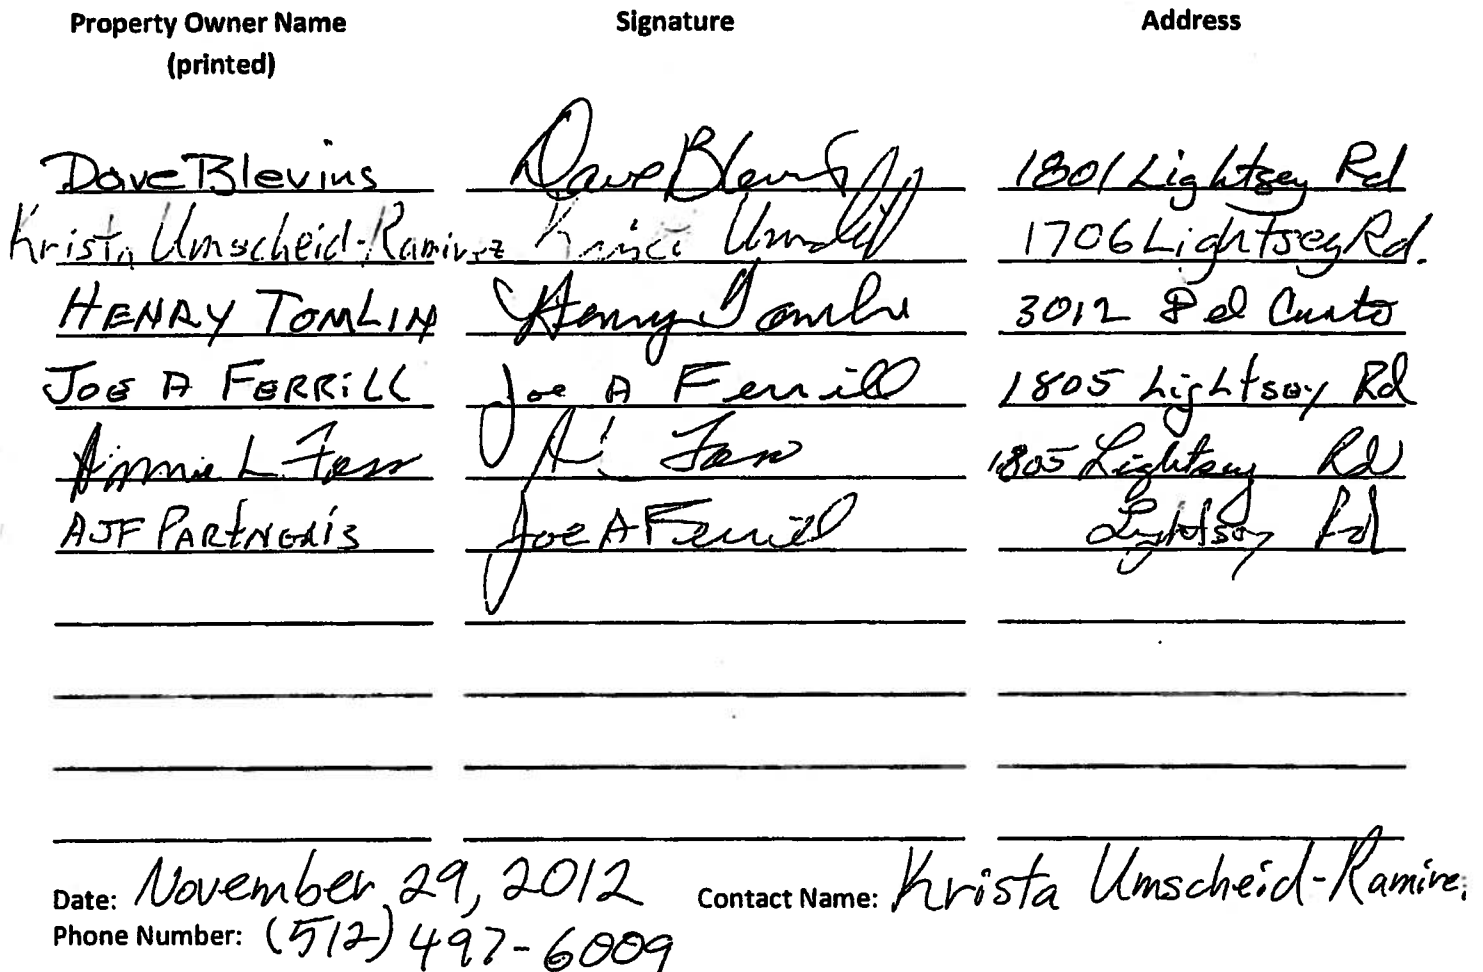 Property Owner Name Signature Address
(printed)
Dave Blevins Dave Blevins 1801 Lightsey Rd
Krista Umscheid-Ramirez Krista 1706 Lightsey Rd.
HENRY TOMLIN Henry Tomlin 3012 Del Curto
JOE A FERRILL Joe A Ferrill 1805 Lightsey Rd
L. 1805 Lightsey Rd
AJF PARTNERS Joe A Ferrill Lightsey Rd
Date: November 29, 2012 Contact Name: Krista Umscheid-Ramirez
Phone Number: (512) 497-6009